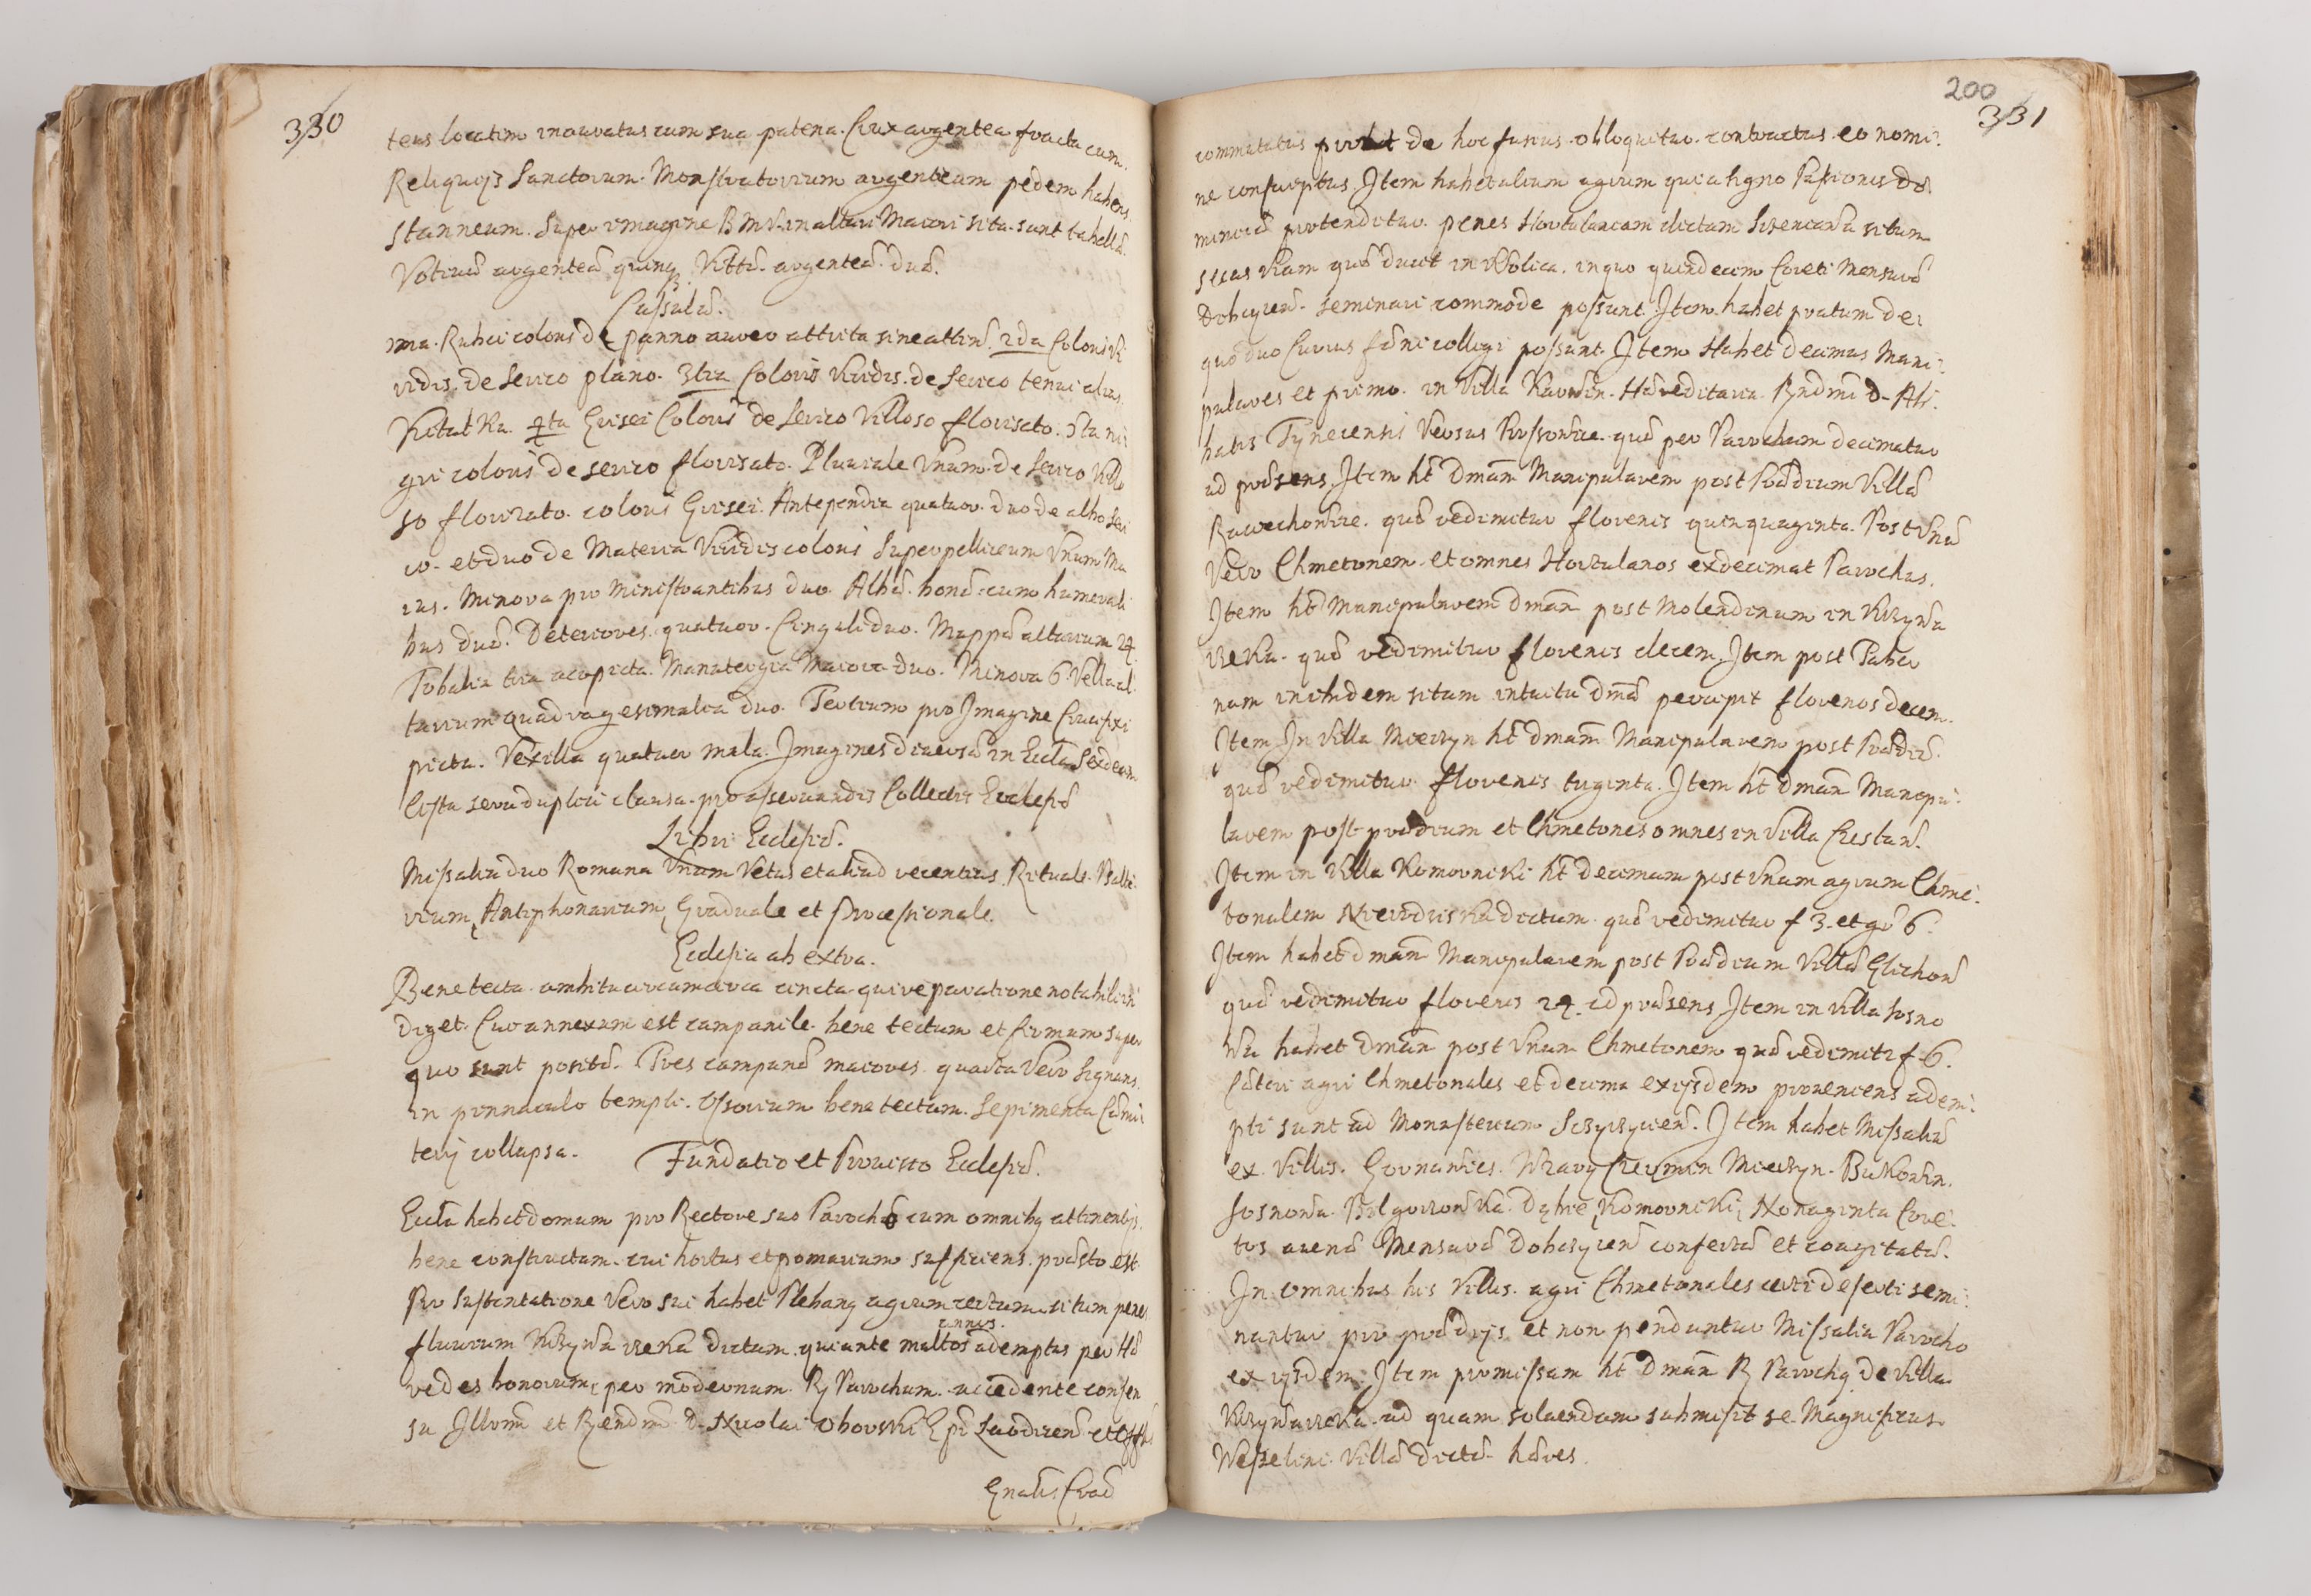 330
teus locatim inauratus cum sua patena. Crux argentea fracta cum
Reliquijs Sanctorum. Monstratorium argenteum pedem habens
Stanneum. Super imagine BMV. in altari Maiori sita. sunt tabellæ
Votivæ argenteæ quinq. Vittæ argenteæ duæ.
Casulæ.
1ma. Rubei coloris de panno aureo attrita sine attin. 2da Coloris Vi
ridis. de Serico plano. 3tia Coloris Viridis. de Serico tenui alias
Kitaika. 4ta Grisei Coloris de Serico Villoso florisato. 5ta ni
gri coloris de serico florisato. Pluviale Unum. de Serico Villo
so florizato. coloris Grisei. Antependia quatuor. duo de albo Seri
co. et duo de Materia Viridis coloris Superpelliceum Unum Ma
ius. Minora pro Ministrantibus duo. Albæ bonæ cum humerali
bus duæ. Deteriores quatuor. Cinguli duo. Mappæ altarium 24.
Tobalia tria acupicta. Manutergia Maiora duo. Minora 6. Vella al
tarium quadragesimalia duo. Tertium pro Imagine Crucifixi
picta. Vexilla quatuor mala. Imagines diversæ in Eccla Sexdecim
Cista sera duplici clausa. pro asservandis Collectis Ecclesiæ
Libri Ecclesiæ.
Missalia duo Romana Unum Vetus et aliud recentius. Rituale. Psalte
rium, Antiphonarium, Graduale et Processionale.
Ecclesia ab extra.
Bene tecta. ambitu circumcirca cincta. qui reparatione notabili in
diget. Cui annexum est campanile. bene tectum et firmum super
quo sunt positæ. Tres campanæ maiores. quarta Vero Signans.
in pinnaculo templi. Ossorium bene tectum. Sepimenta Cæmi
terij collapsa.
Fundatio et Provisio Ecclesiæ.
Eccla habet domum pro Rectore suo Parocho cum omnibq attinentijs.
bene constructam. cui hortus et pomarium sufficiens. præsto est.
Pro Sustentatione Vero sui habet Plebanq agrum certum situm penes
annos.
fluvium Krzywa rzeka dictum. qui ante multos ademptus per Hæ
redes bonorum, per modernum. R Parochum. accedente consen
su Illmi et Rendmi D. Nicolai Oborski Epi Laodicen et Offlis
Gnalis Crac
200
331
commutatus prout de hoc fusius. obloquitur. contractus eo nomi
ne conscriptus. Item habet alium agrum qui a ligno Passionis Do
minicæ protenditur. penes Hortulaniam dictam situm
secus Viam quæ ducit in in quo quindecim Coreti Mensuræ
Dobcycen. seminari commode possunt. Item habet pratum de
quo duo Currus fæni colligi possunt. Item Habet decimas Mani
pulares et primo. in Villa Hæreditaria. Rndmi D. Ab
batis Tynecensis Versus quæ per Parochum decimatur
ad præsens. Item ht Dmam Manipularem post Prædium Villæ
quæ redimitur florenis quinquaginta. Post Unum
Vero Chmetonem et omnes Hortulanos exdecimat Parochus.
Item ht Manipularem dmam post Molendinum in Krzywa
rzeka. quæ redimitur florenis decem. Item post Taber
nam inibidem sitam intuitu dmæ percipit florenos decem.
Item In Villa Mierzyn ht dmam Manipularem post Prædiu
quæ redimitur. florenis triginta. Item ht dmam Manipu
larem post prædium et Chmetones omnes in Villa
Item in Villa Komorniki ht decimam post Unum agrum Chme
tonalem dictum. quæ redimitur f 3. et gr 6.
Item habet dmam Manipularem post Prædium Villæ
quæ redimitur florenis 24. ad præsens Item in Villa Sosno
wa habet Dmam post Unum Chmetonem quæ redimitr f. 6.
Cæteri agri Chmetonales et decima ex ijsdem proveniens adem
pti sunt ad Monasterium Item habet Missalia
ex Villis. Mierzyn.
Sosnowa. Dąbie, Komorniki, Nonaginta Core
tos avenæ Mensuræ Dobczycen confertæ et coagitatæ.
In omnibus his Villis. agri Chmetonales certi deserti semi
nantur pro prædijs et non penduntur Missalia Parocho
ex ijsdem. Item promissam ht Dmam R Parochq de Villa
Krzywarzeka. ad quam solvendam submisit se Magnificus
Wesselini Villæ dictæ hæres.